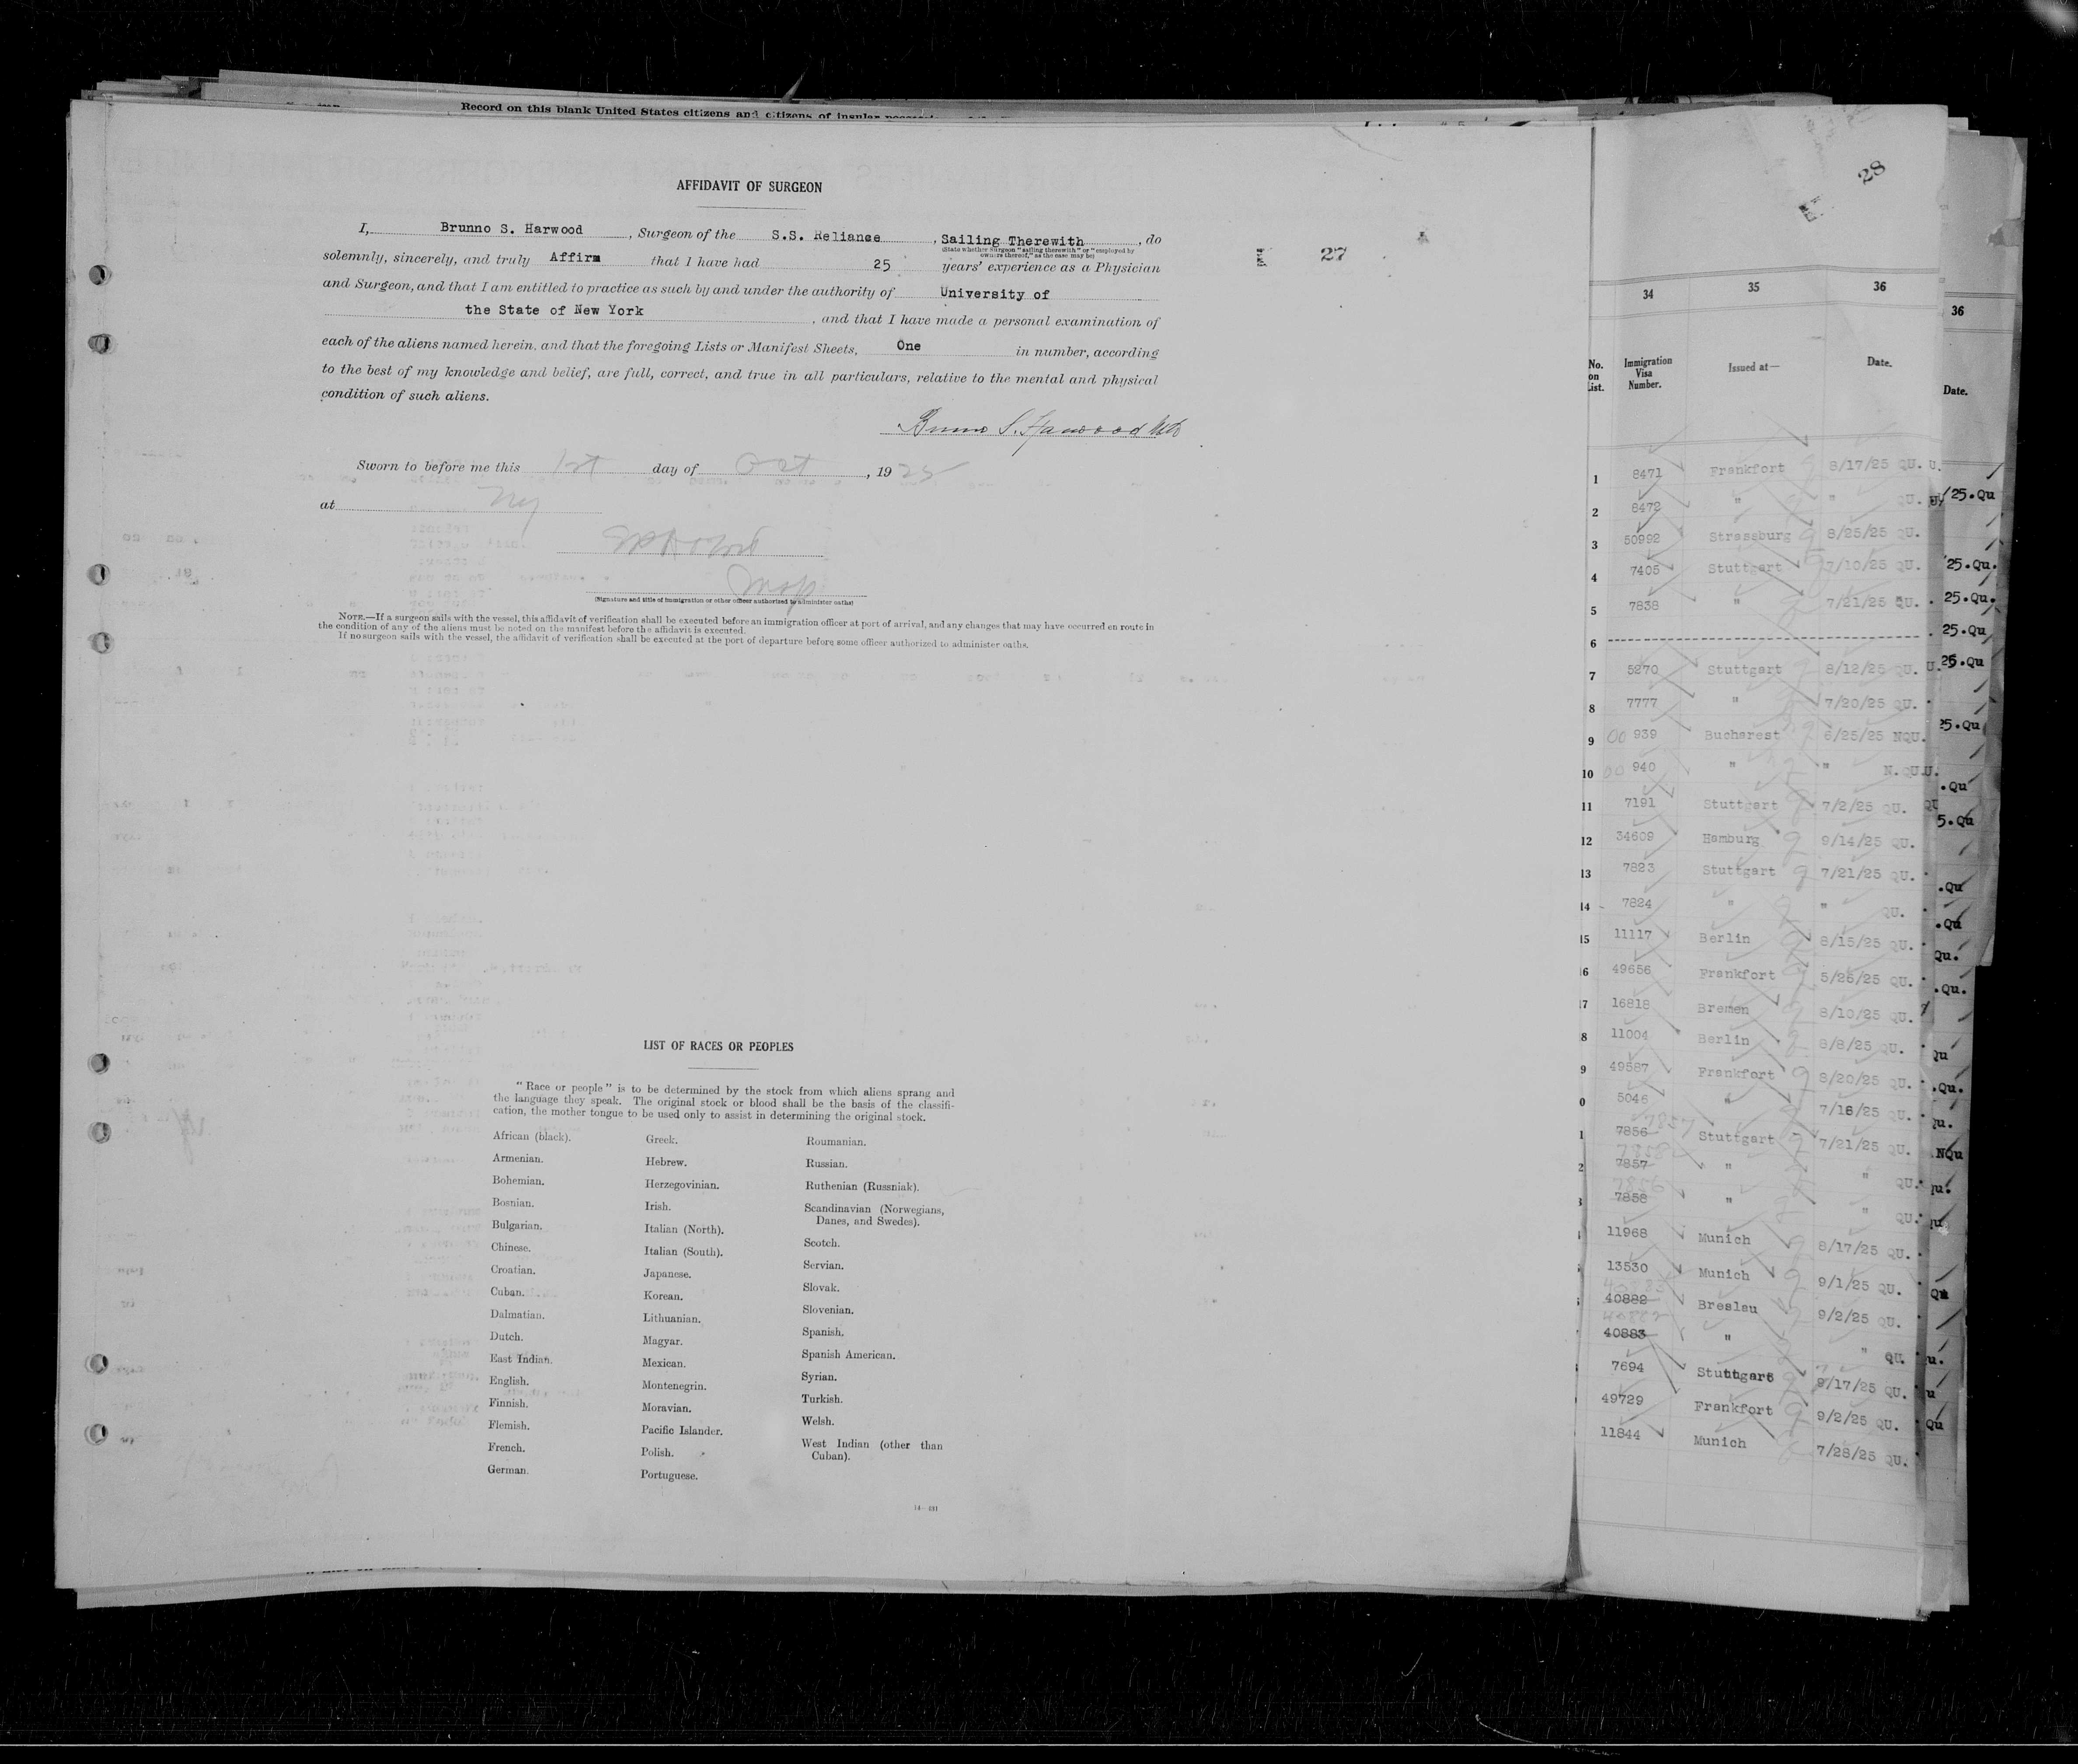 Record on this blank United States citizens and citizens of insular
AFFIDAVIT OF SURGEON
I, Brunno S. Harwood, Surgeon of the S.S. Reliance, Sailing Therewith, do
(State whether Surgeon "sailing therewith" or "employed by
owners thereof," as the case may be)
solemnly, sincerely, and truly Affirm that I have had 25 years' experience as a Physician
and Surgeon, and that I am entitled to practice as such by and under the authority of University of
the State of New York, and that I have made a personal examination of
each of the aliens named herein, and that the foregoing Lists or Manifest Sheets, One in number, according
to the best of my knowledge and belief, are full, correct, and true in all particulars, relative to the mental and physical
condition of such aliens.
Bruno S. Harwood MD
Sworn to before me this 1st day of Oct, 1925
at NY
(Signature and title of immigration or other officer authorized to administer oaths)
NOTE.—If a surgeon sails with the vessel, this affidavit of verification shall be executed before an immigration officer at port of arrival, and any changes that may have occurred en route in
the condition of any of the aliens must be noted on the manifest before the affidavit is executed.
If no surgeon sails with the vessel, the affidavit of verification shall be executed at the port of departure before some officer authorized to administer oaths.
27
LIST OF RACES OR PEOPLES
"Race or people" is to be determined by the stock from which aliens sprang and
the language they speak. The original stock or blood shall be the basis of the classifi-
cation, the mother tongue to be used only to assist in determining the original stock.
African (black).
Armenian.
Bohemian.
Bosnian.
Bulgarian.
Chinese.
Croatian.
Cuban.
Dalmatian.
Dutch.
East Indian.
English.
Finnish.
Flemish.
French.
German.
Greek.
Hebrew.
Herzegovinian.
Irish.
Italian (North).
Italian (South).
Japanese.
Korean.
Lithuanian.
Magyar.
Mexican.
Montenegrin.
Moravian.
Pacific Islander.
Polish.
Portuguese.
Roumanian.
Russian.
Ruthenian (Russniak).
Scandinavian (Norwegians,
Danes, and Swedes).
Scotch.
Servian.
Slovak.
Slovenian.
Spanish.
Spanish American.
Syrian.
Turkish.
Welsh.
West Indian (other than
Cuban).
28
34 35 36
No. on List. Immigration Visa Number. Issued at— Date.
1 8471 Frankfort 8/17/25 QU.
2 8472 " " QU.
3 50992 Strassburg 8/25/25 QU.
4 7405 Stuttgart 7/10/25 QU.
5 7838 " 7/21/25 QU.
6
7 5270 Stuttgart 8/12/25 QU.
8 7777 " 7/20/25 QU.
9 00 939 Bucharest 6/25/25 NQU.
10 00 940 " " N.QU.
11 7191 Stuttgart 7/2/25 QU.
12 34609 Hamburg 9/14/25 QU.
13 7823 Stuttgart 7/21/25 QU.
14 7824 " " QU.
15 11117 Berlin 8/15/25 QU.
6 49656 Frankfort 5/26/25 QU.
7 16818 Bremen 8/10/25 QU.
8 11004 Berlin 8/8/25 QU.
9 49587 Frankfort 8/20/25 QU.
0 5046 " 7/18/25 QU.
1 7856 7857 Stuttgart 7/21/25 QU.
2 7857 7858 " " QU.
3 7858 7856 " " QU.
11968 Munich 8/17/25 QU.
13530 Munich 9/1/25 QU.
40882 40883 Breslau 9/2/25 QU.
40883 40882 " " QU.
7694 Stuttgart 7/17/25 QU.
49729 Frankfort 9/2/25 QU.
11844 Munich 7/28/25 QU.
36
Date.
/25.Qu
25.Qu.
25.Qu.
25.Qu
25.Qu
25.Qu
.Qu
5.Qu
.Qu
.Qu
Qu.
.Qu.
Qu
.Qu.
u.
NQu
u.
u
Qu
u.
u
Qu